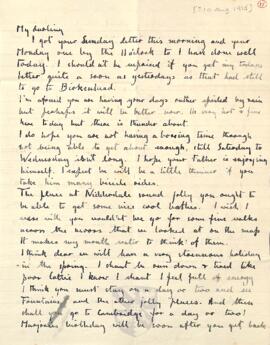 [? 10 Aug 1915]
My darling
I got your Sunday letter this morning and your
Monday one by the 11 o'clock so I have done well
today. I should not be surprised if you get my
letter quite as soon as yesterdays as that had still
to go to Birkenhead.
I'm afraid you are having your days rather spoiled by rain
but perhaps it will be better now. Its very hot & fine
here today but there is thunder about.
I do hope you are not having a boring time through
not being able to get about enough, still Saturday to
Wednesday isnt long. I hope your Father is enjoying
himself. I expect he will be a little thinner if you
take him many bicycle rides.
The place at Nidderdale sounds jolly you ought to
be able to get some nice cool bathes. I wish I
was with you wouldn't we go for some fine walks
across the moors that we looked at on the map
It makes my mouth water to think of them.
I think dear we will have a very strenuous holiday
in the spring. I shant be run down & tired like
poor I know I shant I feel full of energy
I think you must stay on a day or two and see
Fountains and the other jolly places. And then
shall we go to Cambridge for a day or two?
Marjories birthday will be soon after you get back